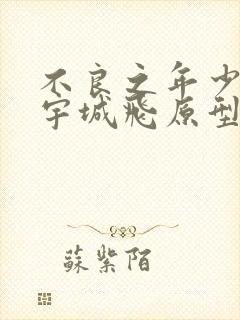 不良之年少
宇城飛原型
蘇紫陌